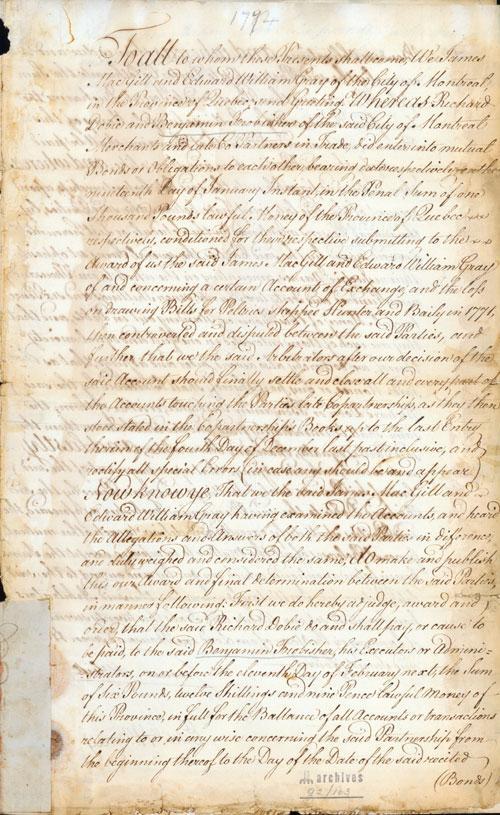 1772
To all to whom these Presents shall come, We James
Mac Gill and Edward William Gray of the City of Montreal,
in the Province of Quebec, send Greeting. Whereas Richard
Dobie and Benjamin Frobisher of the said City of Montreal
Merchants and late Co Partners in Trade, did enter into mutual
Bonds or Obligations to each other, bearing date respectively on the
nineteenth Day of January Instant, in the Penal Sum of one
thousand Pounds lawful Money of the Province of Quebec
respectively, conditioned for their respective submitting to the
Award of us the said James Mac Gill and Edward William Gray
of and concerning a certain Account of Exchange, and the Loss
on drawing Bills for Peltries shipped Hunter and Baily in 1771,
then controverted and disputed between the said Parties, and
further that we the said Arbitrators after our decision of the
said Account should finally settle and close all and every part of
the Accounts touching the Parties late Copartnership, as they then
stood stated in the Copartnership Books up to the last Entry
therein of the fourth Day of December last past inclusive, and
rectify all special Errors (in case any should be and appear)
Now know ye, That we the said James Mac Gill and
Edward William Gray having examined the Accounts, and heard
the Allegations and Answers of both the said Parties in difference,
and duly weighed and considered the same, do make and publish
this our Award and final determination between the said Parties
in manner following. First we do hereby adjudge, award and
order, that the said Richard Dobie do and shall pay, or cause to
be paid, to the said Benjamin Frobisher, his Executors or Admini-
strators, on or before the eleventh Day of February next, the Sum
of Six Pounds, twelve Shillings and nine Pence lawful Money of
this Province, in full for the Ballance of all Accounts or transactions
relating to or in any wise concerning the said Partnership from
the beginning thereof to the Day of the Date of the said recited
(Bonds)
archives